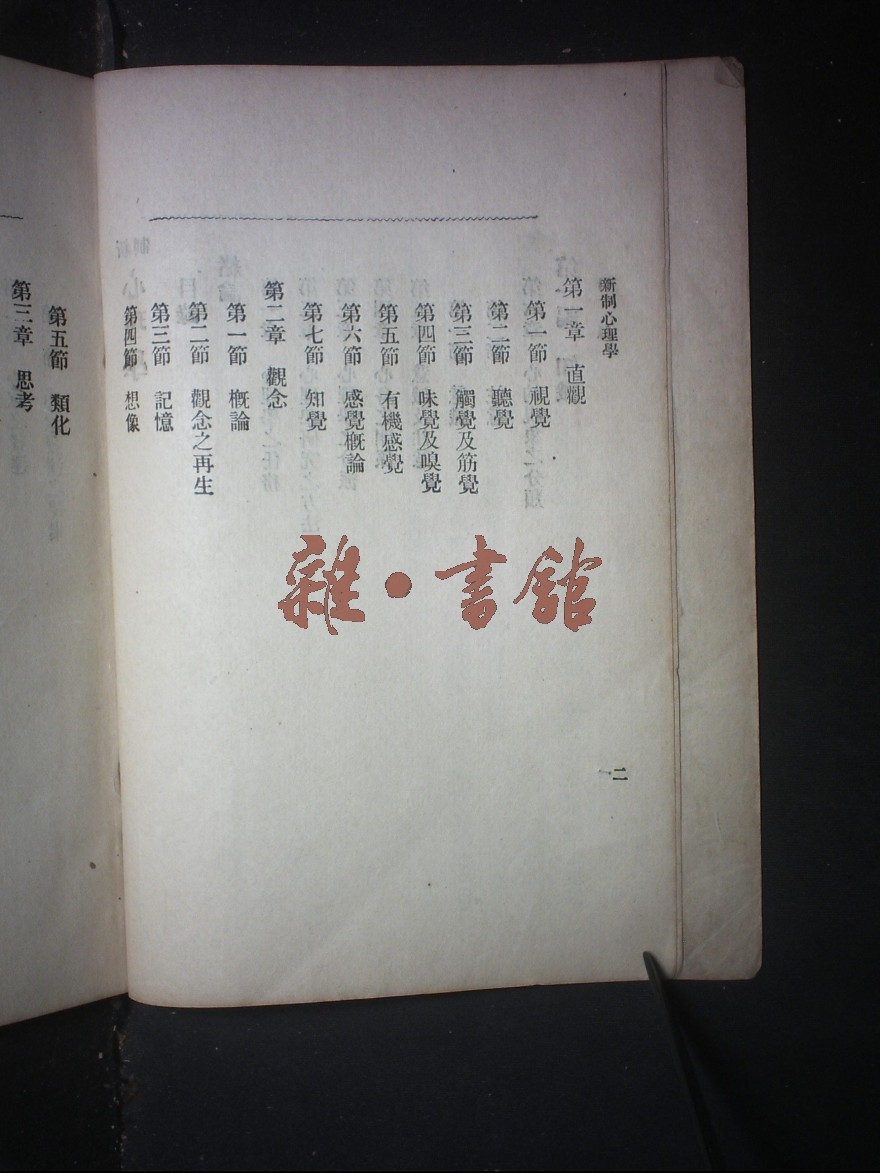 新制心理學
第一章　直觀
第一節　視覺
第二節　聽覺
第三節　觸覺及筋覺
第四節　味覺及嗅覺
第五節　有機感覺
第六節　感覺概論
第七節　知覺
第二章　觀念
第一節　概論
第二節　觀念之再生
第三節　記憶
第四節　想像
二
第五節　類化
第三章　思考
雜・書館